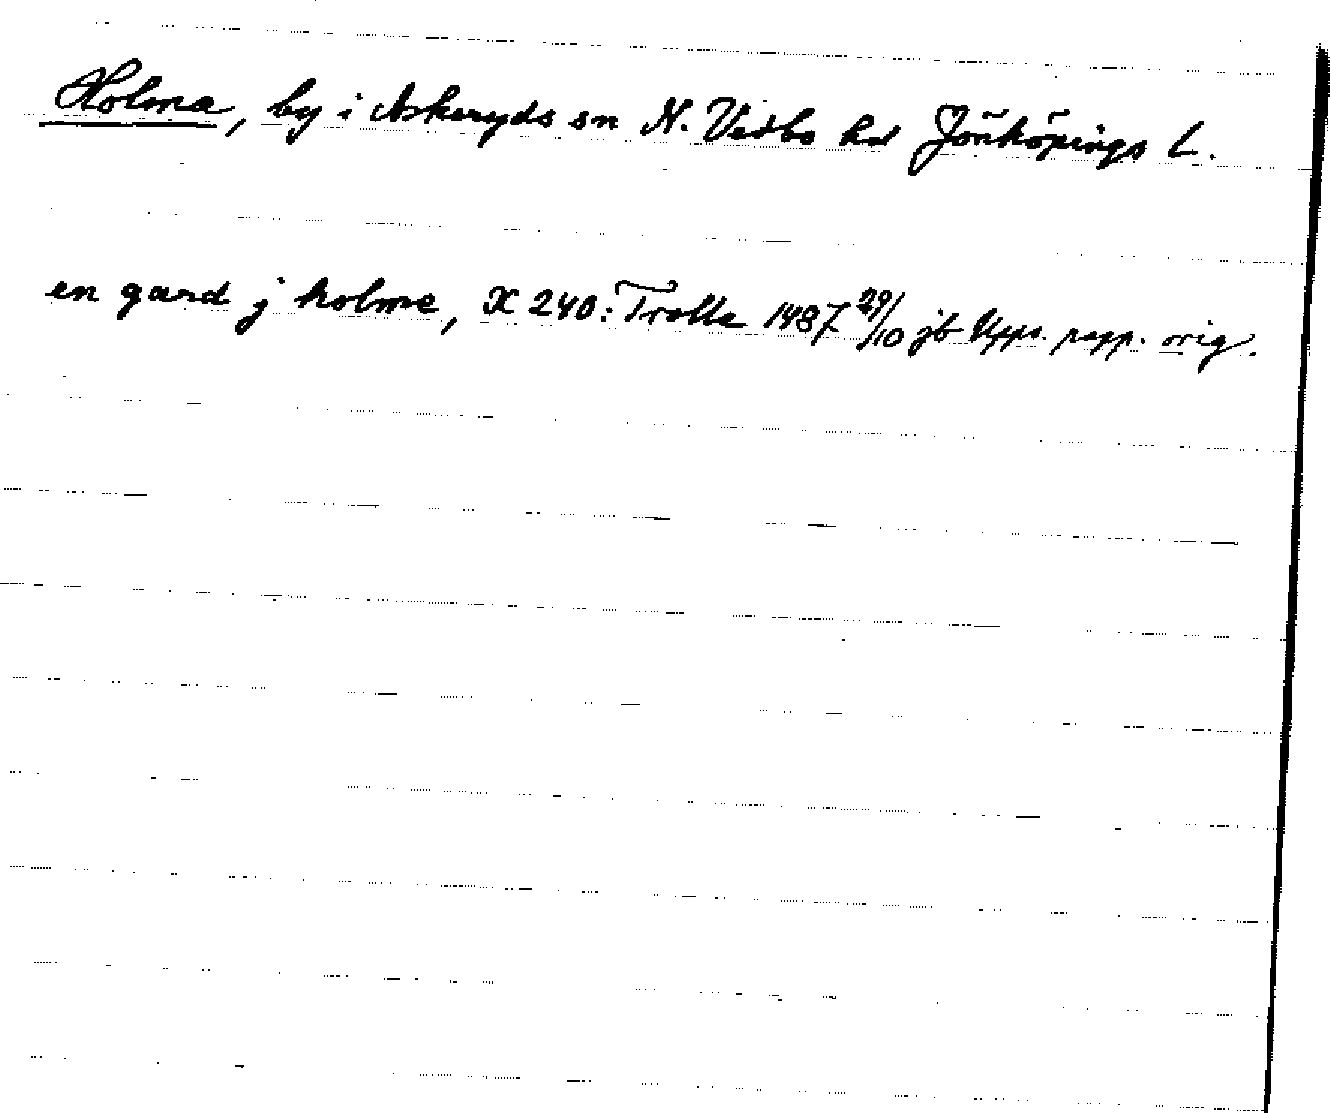 Holma, by i Askeryds sn N. Vedbo hd Jönköpings L.
en gard j holme, X 240: Trolle 1487 29/10 jb Upps. papp. orig.